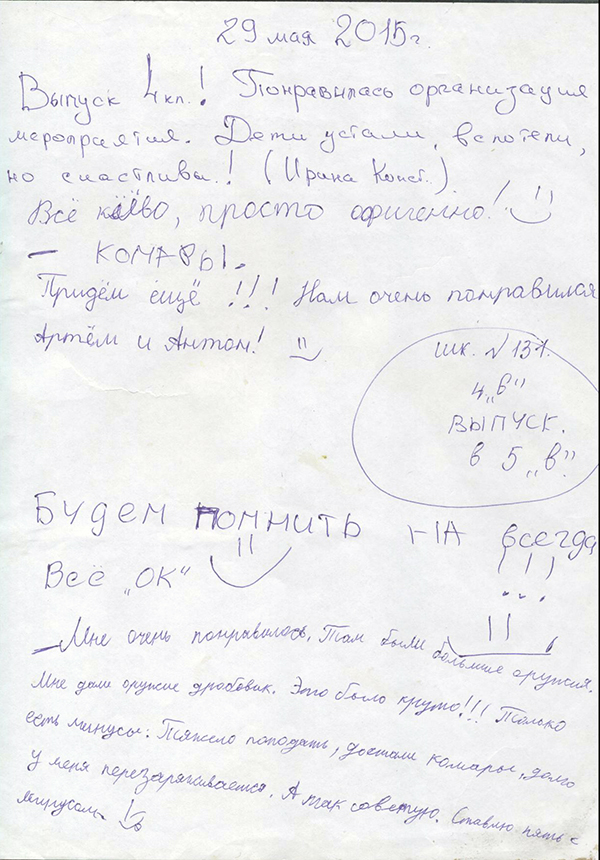 29 мая 2015г.
Выпуск 4 кл.! Понравилась организация
мероприятия. Дети устали, вспотели,
но счастливы! (Ирина Конст.)
Всё клёво, просто офигенно!
– КОМАРЫ.
Придём ещё !!! Нам очень понравился
Артём и Антон!
шк. №131.
4 „в"
ВЫПУСК.
в 5 „в".
Будем помнить НА всегда
!!!
Всё „ОК"
– Мне очень понравилось. Там были большие оружия.
Мне дали оружие дробовик. Это было круто!!! Только
есть минусы: Тяжело попадать, достали комары, долго
у меня перезаряжается. А так советую. Ставлю пять с
минусом.